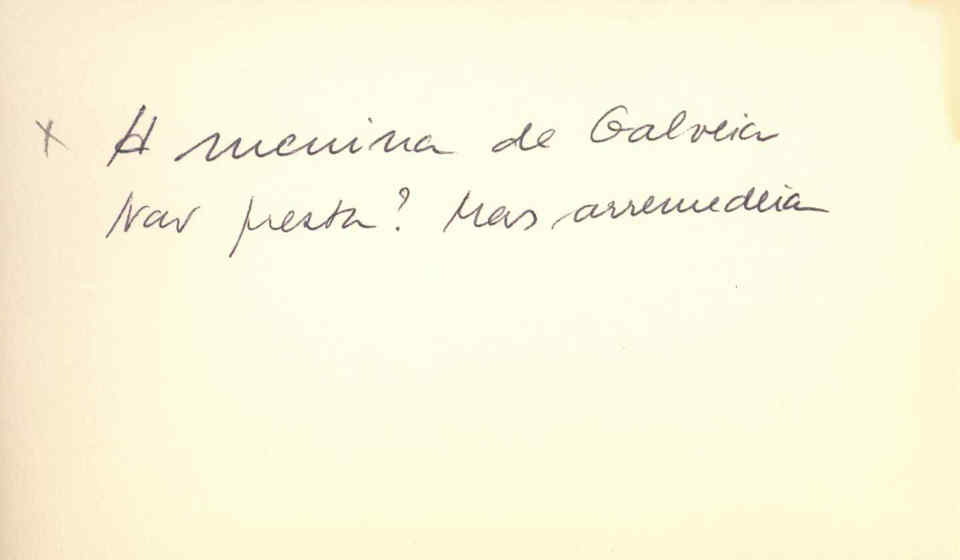 x A menina de Galveia
Nav presta? Mas arremedeia